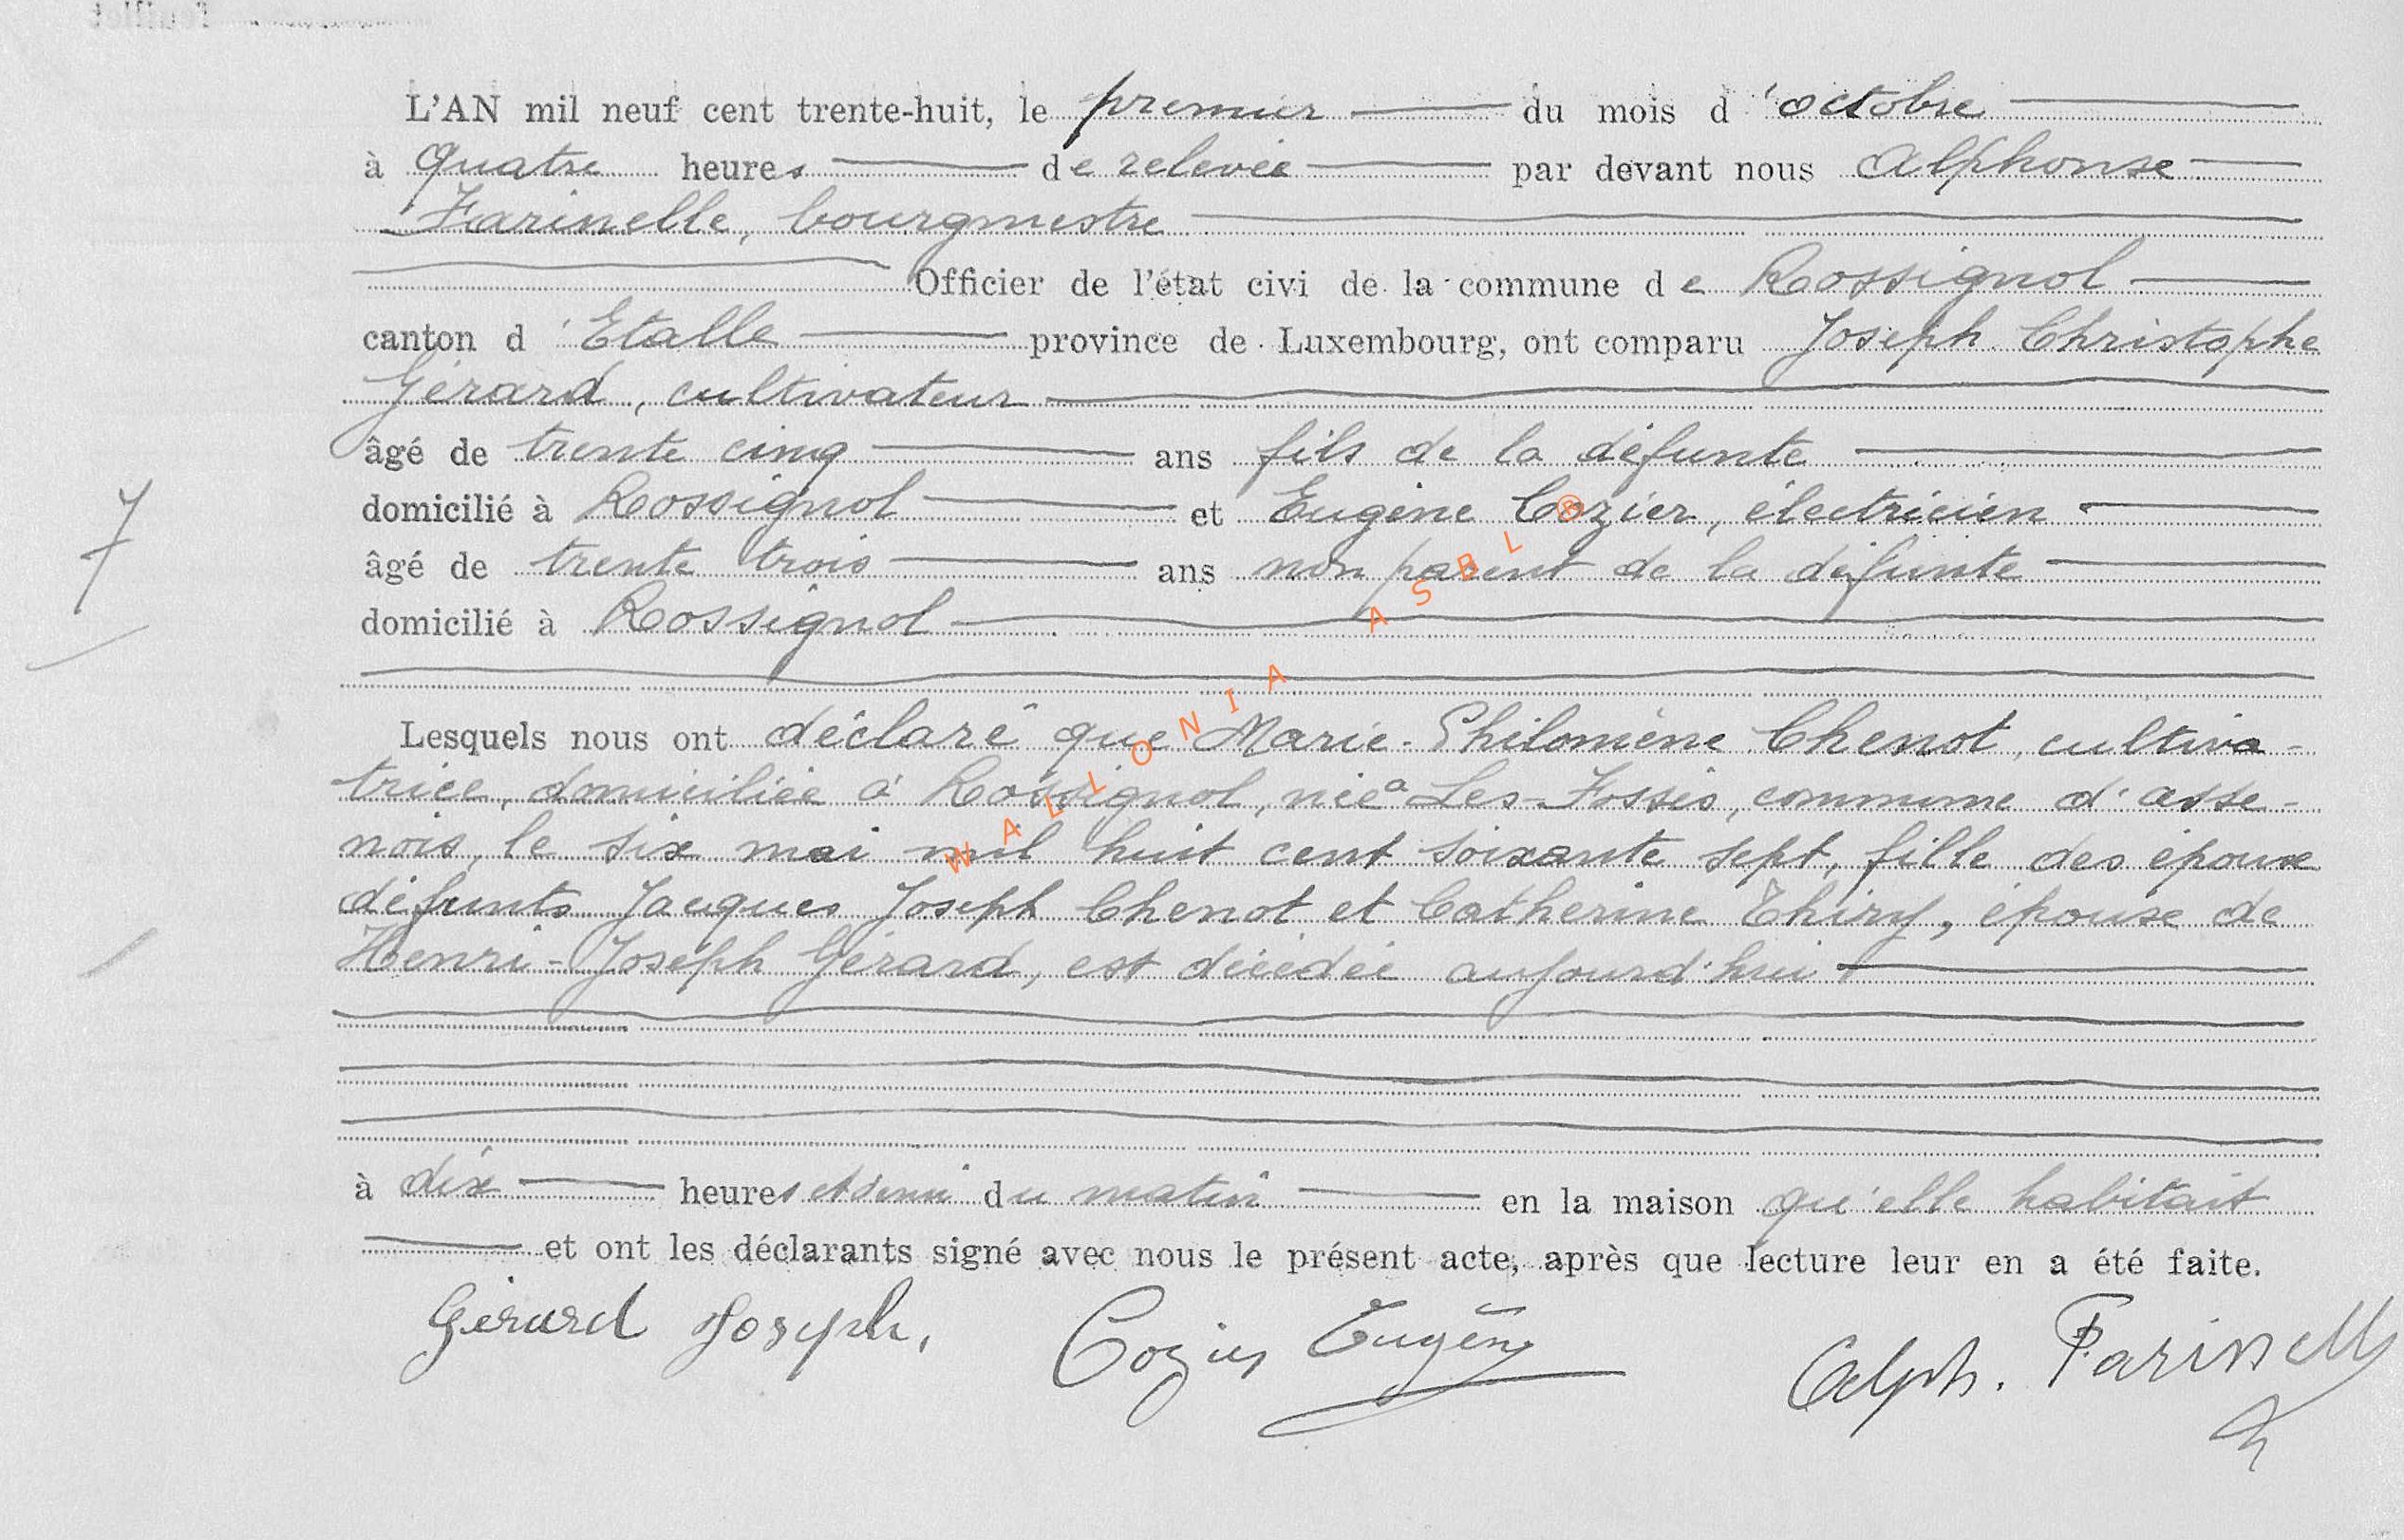 L'AN mil neuf cent trente-huit, le premier du mois d'octobre
à quatre heures de relevée par devant nous Alphonse
Farinelle, bourgmestre
Officier de l'état civi de la commune de Rossignol
canton d'Etalle province de Luxembourg, ont comparu Joseph Christophe
Gérard, cultivateur
âgé de trente cinq ans fils de la défunte
domicilié à Rossignol et Eugène Cozier, électricien
âgé de trente trois ans non parent de la défunte
domicilié à Rossignol
7
Lesquels nous ont déclaré que Marie-Philomène Chenot, cultiva-
trice, domiciliée à Rossignol, née à Les-Fossés, commune d'Asse-
nois, le six mai mil huit cent soixante sept, fille des époux
défunts Jacques Joseph Chenot et Catherine Thiry, épouse de
Henri-Joseph Gérard, est décédée aujourd'hui
à dix heures et demi du matin en la maison qu'elle habitait
et ont les déclarants signé avec nous le présent acte, après que lecture leur en a été faite.
Gérard Joseph, Cozier Eugène Alph. Farinelle
WALLONIA ASBL ®